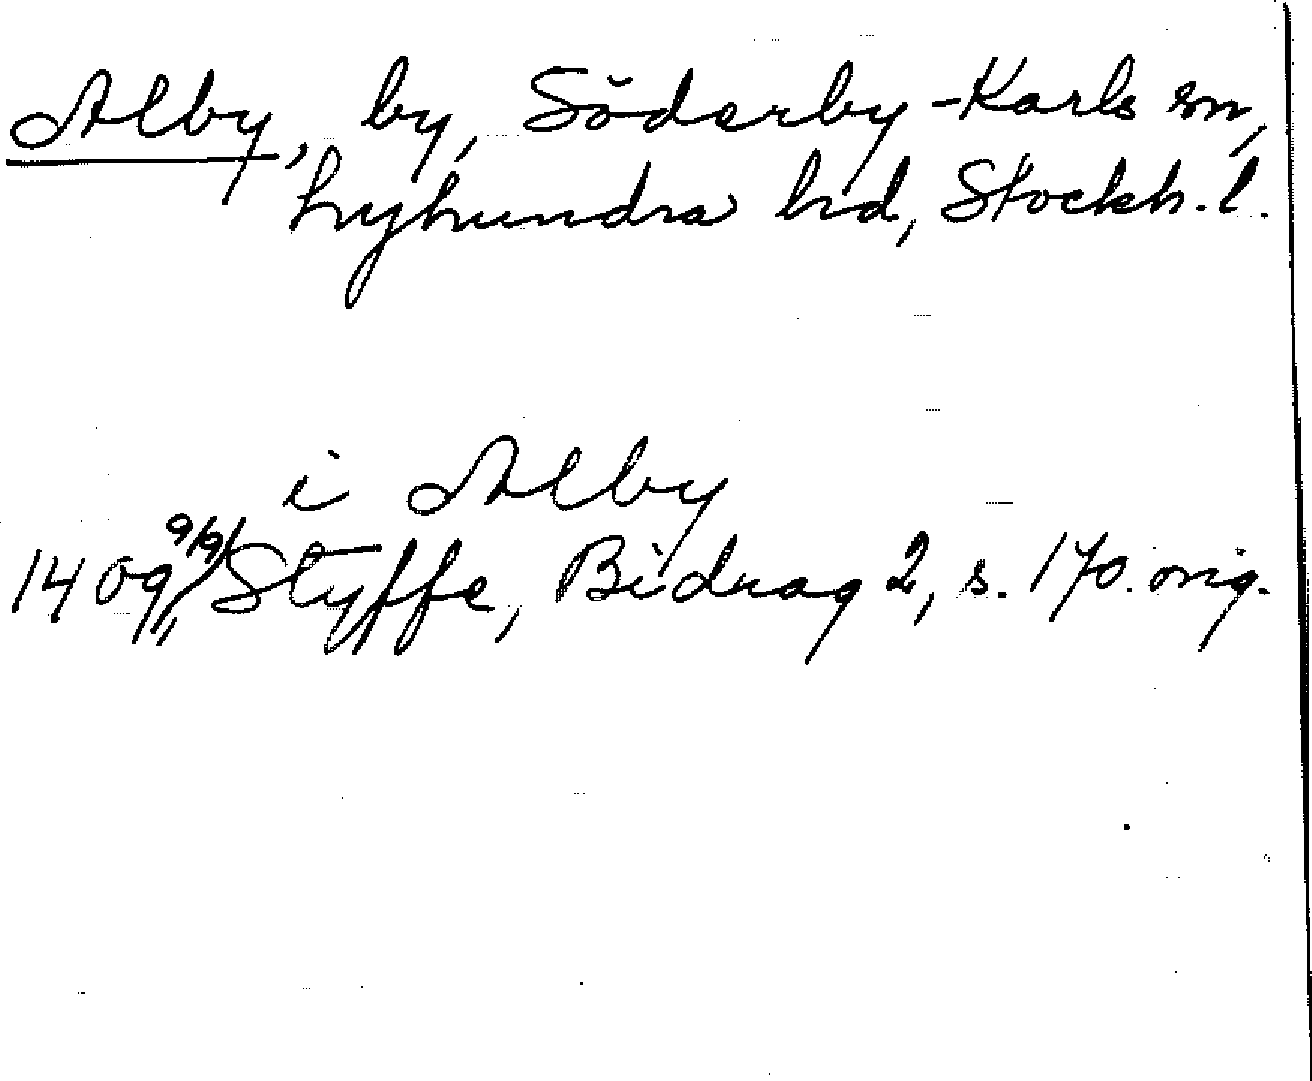 Alby, by, Söderby-Karls sn,
Lyhundra hd, Stockh. l.
i Alby
1409 9/9 Styffe, Bidrag 2, s. 170. orig.